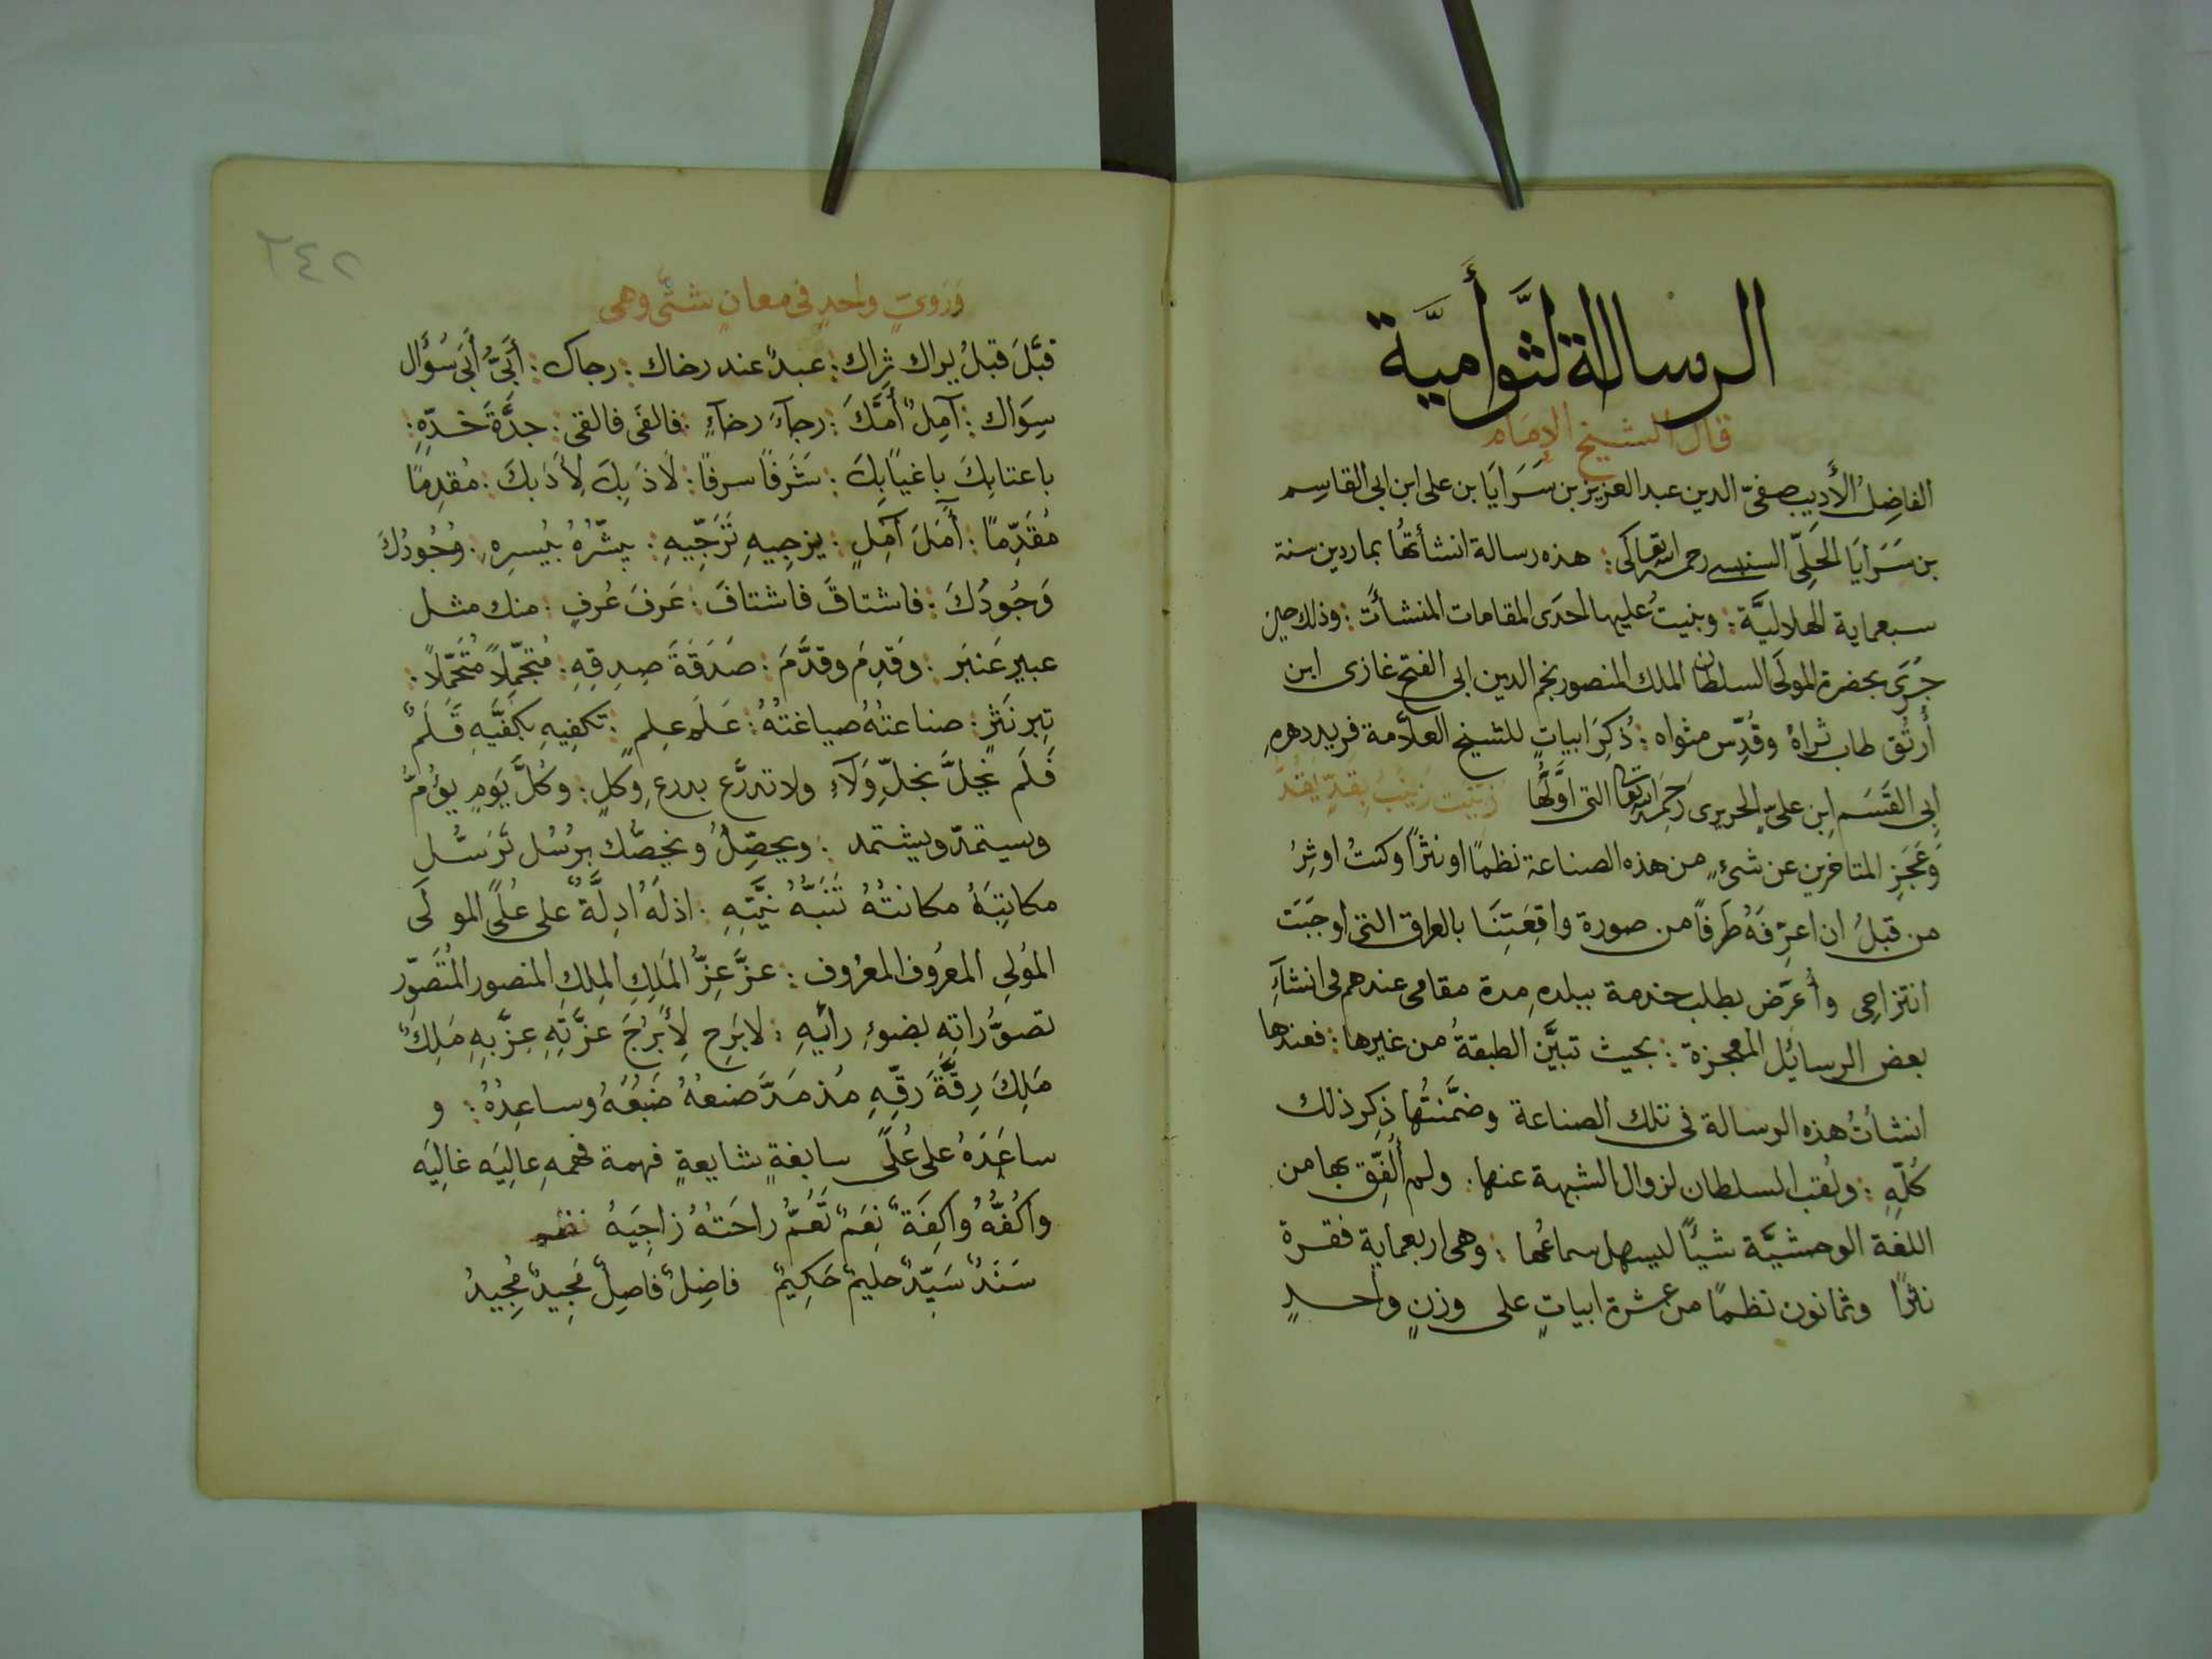 الرسالة التَّوأَميَّة
قال الشيخ الإمام
الفاضِلُ الأَدِيب صفىّ الدين عبد العزيز بن سَرَايَا بن على ابن ابى القاسِم
بن سَرَايَا الحَلِىّ السنبسى رحمه الله تعالَى : هذه رسالة انشأتُها بماردين سنة
سبعماية الهلاليَّة : وبنيتُ عليها احدَى المقامات المنشأَت : وذلك حين
جُرِىَ بحضرة المولَى السلطان الملك المنصور نجم الدين ابى الفتح غازى ابن
أُرتُق طاب ثراهُ وقُدّس مثواه : ذُكِرَ ابياتٍ للشيخ العلاَّمة فريد دهرهِ
ابى القَسَم ابن علىّ الحريرى رَحِمَهُ الله تعالى التى اوَّلُها زَيَّنَت زَينَبُ بِقَدٍّ يَقُدُّ
وَعَجَزِ المتاخرين عن شئٍ من هذه الصناعة نظمًا او نثرًا وكنتُ اوثِرُ
من قبلُ ان اعرّفَهُ طَرفًا من صورة واقِعَتِنَا بالعراق التى اوجَبَت
انتزاحى وأُعَرّض بطلب خدمة ببلده مدة مقامى عندهم فى انشآءِ
بعض الرسائل المعجزة : بحيث تبيَّن الطبقةُ من غيرها : فعندها
انشأتُ هذه الرسالة فى تلك الصناعة وضمَّنتُها ذِكر ذلك
كُلّهِ : ولقب السلطان لزوال الشبهة عنها : ولم أُلفِّق بها من
اللغة الوحشيَّة شيأً ليسهل سماعُها : وهى اربعماية فقرة
نثرًا وثمانون نظمًا من عشرة ابياتٍ على وزنٍ واحدٍ
٢٤٢
وَرَوىّ واحدٍ فى معانٍ شتَّى وهى
قبَّلَ قبلُ يراك ثراك : عبدٌ عند رخاك : رجاك : أَبىُّ أَبَى سُؤَال
سِوَاك : آمِلٌ أُمَّكَ : رجآءَ رخآءٍ : فالفَى فالقى : جدَّةَ خَدّهِ :
باعتابِكَ باغيًا بِكَ : شَرَفًا سرفًا : لَاذَ بِكَ لِأَدَبكَ : مُقدِمًا
مُقَدِّمًا : أَمَلَ آمِلٍ : يزجِيهِ تَرَجّيهِ : يبشّرُهُ بيُسرِه : وُجُودُكَ
وَجُودُكَ : فاشتاقَ فاشتافَ : عَرفَ عُرفٍ : منك مثل
عبير عَنبَر : وقَدِمَ وقدَّمَ : صَدَقَةَ صِدقِهِ : مُتجَمّلاً مُتَحَمّلاً :
تِبر نَثرٍ : صناعتُهُ صياغتُهُ : عَلَم عِلمٍ : تكفِيهِ بكفَّيهِ قَلَمٌ
فَلَم يخلَّ بخلّ وَلآءٍ ولا تدرَّع بدرعِ وكلٍ : وكُلَّ يَومٍ يؤُمُّ
وسيتمدّ ويشتمد : ويحصِّلُ ويخصُّك بِرُسُل تَرَسُّل
مكاتِبَهُ مكانتُهُ تَنبَّهُ نيَّتِهِ : اذ لَهُ ادِلَّةٌ على عُلَى المولَى
المُولِى المعرُوف المعرُوف : عزَّ عِزُّ المَلِكِ المِلكِ المنصور المُتَصَوّر
تصوُّراتِهِ بضوءِ رأيهِ : لا بَرِح لِأَبرُجَ عزَّتِهِ عِزَّ بِهِ مَلِكٌ
مَلِكَ رِقَّةَ رِقّهِ مُذ مَدَّ ضبعُهُ صَنعَهُ وساعِدُهُ : و
ساعَدَهُ على عُلَى سابغةٍ شايعةٍ فهمة فهمهِ عاليَه غاليَه
واكُفُّهُ واكِفَةٌ نِعَمٌ تَعُمُّ راحَتُهُ زاجِيَهُ نظم
سَنَدٌ سَيّدٌ حليمٌ حَكِيمٌ فاضِلٌ فاصِلٌ مَجِيدٌ مُجِيدُ